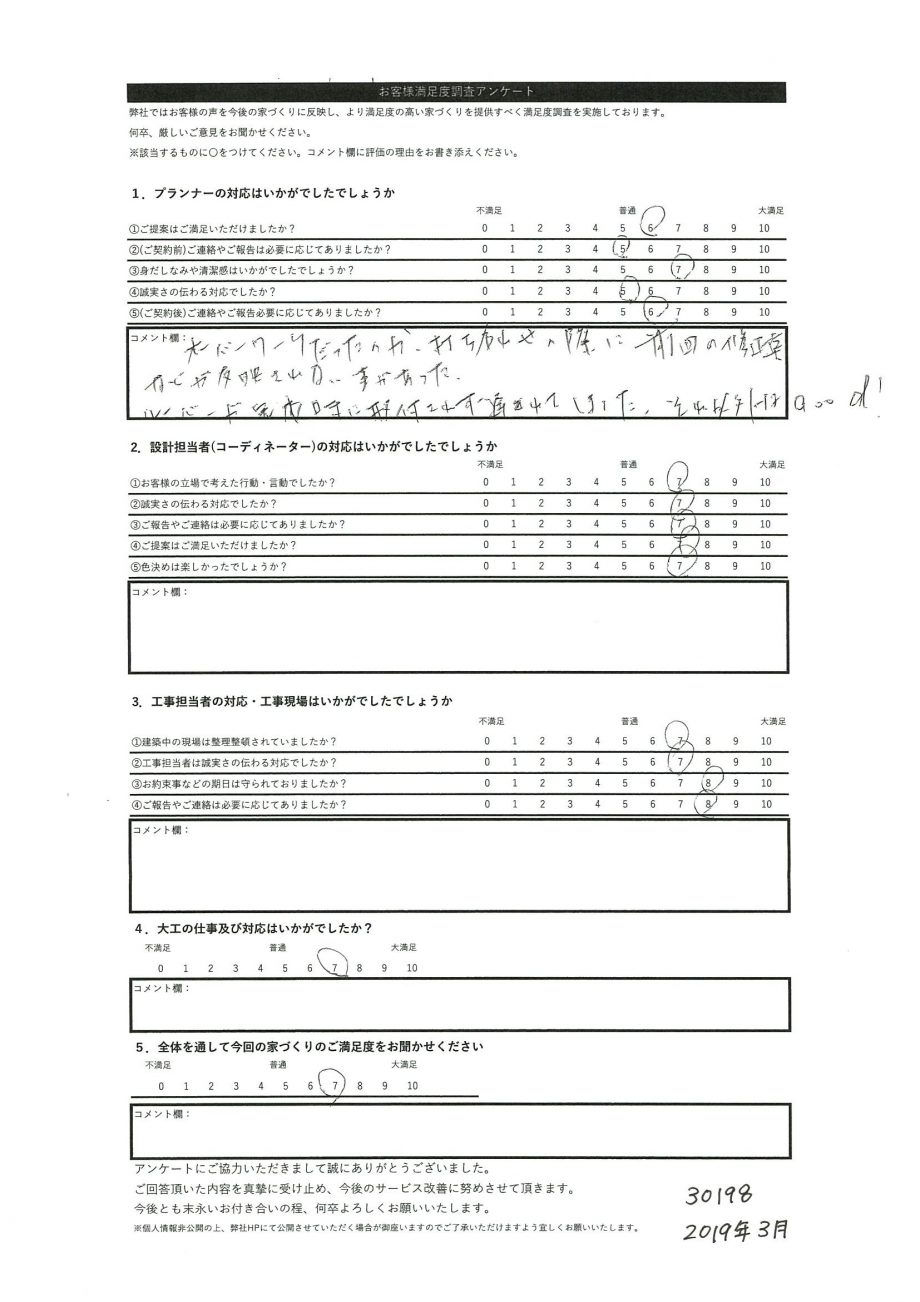 お客様満足度調査アンケート
弊社ではお客様の声を今後の家づくりに反映し、より満足度の高い家づくりを提供すべく満足度調査を実施しております。
何卒、厳しいご意見をお聞かせください。
※該当するものに〇をつけてください。コメント欄に評価の理由をお書き添えください。
1．プランナーの対応はいかがでしたでしょうか
不満足 普通 大満足
①ご提案はご満足いただけましたか？ 0 1 2 3 4 5 6 7 8 9 10
②(ご契約前)ご連絡やご報告は必要に応じてありましたか？ 0 1 2 3 4 5 6 7 8 9 10
③身だしなみや清潔感はいかがでしたでしょうか？ 0 1 2 3 4 5 6 7 8 9 10
④誠実さの伝わる対応でしたか？ 0 1 2 3 4 5 6 7 8 9 10
⑤(ご契約後)ご連絡やご報告必要に応じてありましたか？ 0 1 2 3 4 5 6 7 8 9 10
コメント欄： だったのか、打ち合わせの際に前回の修正案
などが反映されない事があった。
取付されず それ以外はGood!
2．設計担当者(コーディネーター)の対応はいかがでしたでしょうか
不満足 普通 大満足
①お客様の立場で考えた行動・言動でしたか？ 0 1 2 3 4 5 6 7 8 9 10
②誠実さの伝わる対応でしたか？ 0 1 2 3 4 5 6 7 8 9 10
③ご報告やご連絡は必要に応じてありましたか？ 0 1 2 3 4 5 6 7 8 9 10
④ご提案はご満足いただけましたか？ 0 1 2 3 4 5 6 7 8 9 10
⑤色決めは楽しかったでしょうか？ 0 1 2 3 4 5 6 7 8 9 10
コメント欄：
3．工事担当者の対応・工事現場はいかがでしたでしょうか
不満足 普通 大満足
①建築中の現場は整理整頓されていましたか？ 0 1 2 3 4 5 6 7 8 9 10
②工事担当者は誠実さの伝わる対応でしたか？ 0 1 2 3 4 5 6 7 8 9 10
③お約束事などの期日は守られておりましたか？ 0 1 2 3 4 5 6 7 8 9 10
④ご報告やご連絡は必要に応じてありましたか？ 0 1 2 3 4 5 6 7 8 9 10
コメント欄：
4．大工の仕事及び対応はいかがでしたか？
不満足 普通 大満足
0 1 2 3 4 5 6 7 8 9 10
コメント欄：
5．全体を通して今回の家づくりのご満足度をお聞かせください
不満足 普通 大満足
0 1 2 3 4 5 6 7 8 9 10
コメント欄：
アンケートにご協力いただきまして誠にありがとうございました。
ご回答頂いた内容を真摯に受け止め、今後のサービス改善に努めさせて頂きます。
今後とも末永いお付き合いの程、何卒よろしくお願いいたします。
※個人情報非公開の上、弊社HPにて公開させていただく場合が御座いますのでご了承いただけますよう宜しくお願いいたします。
30198
2019年3月